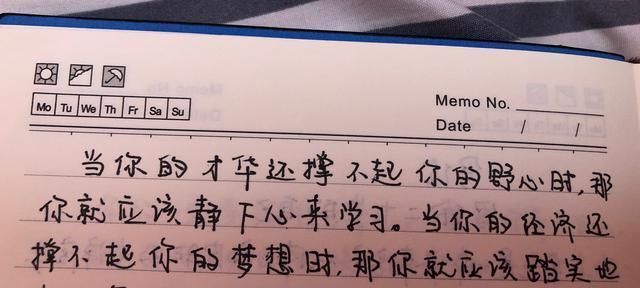 Mo Tu We Th Fr Sa Su
Memo No.
Date / /
当你的才华还撑不起你的野心时,那
你就应该静下心来学习。当你的经济还
撑不起你的梦想时,那你就应该踏实地